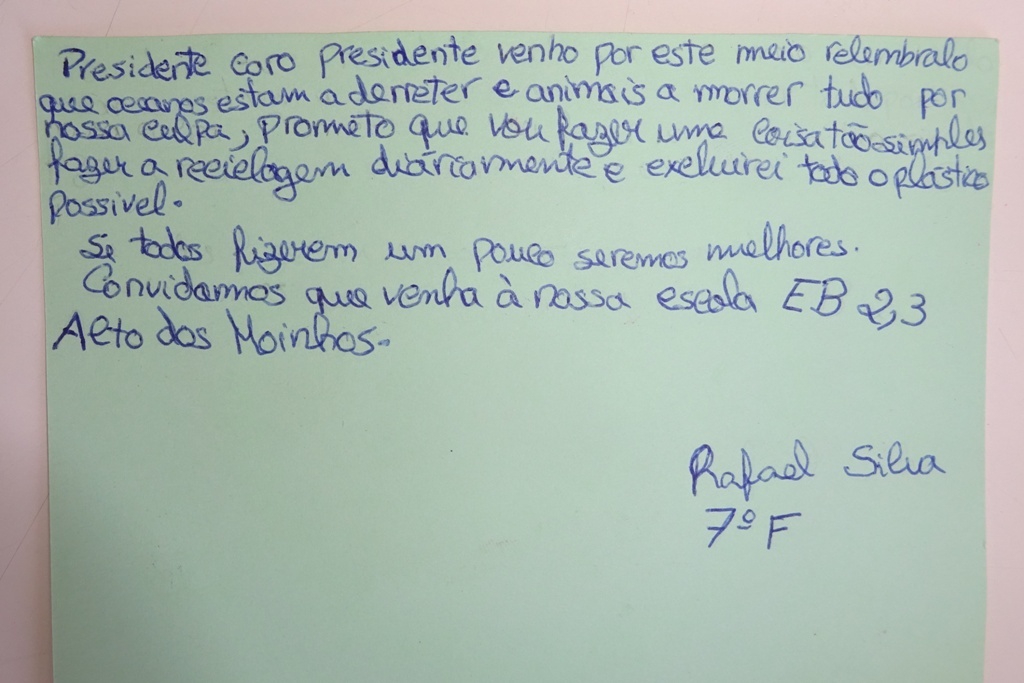 Presidente coro presidente venho por este meio relembralo
que oceanos estam a derreter e animais a morrer tudo por
nossa culpa, prometo que vou fazer uma coisa tão simples
fazer a reciclagem diáriarmente e excluirei todo o plástico
possivel.
Se todos fizerem um pouco seremos melhores.
Convidarmos que venha à nossa escola EB 2,3
Alto dos Moinhos.
Rafael Silva
7º F